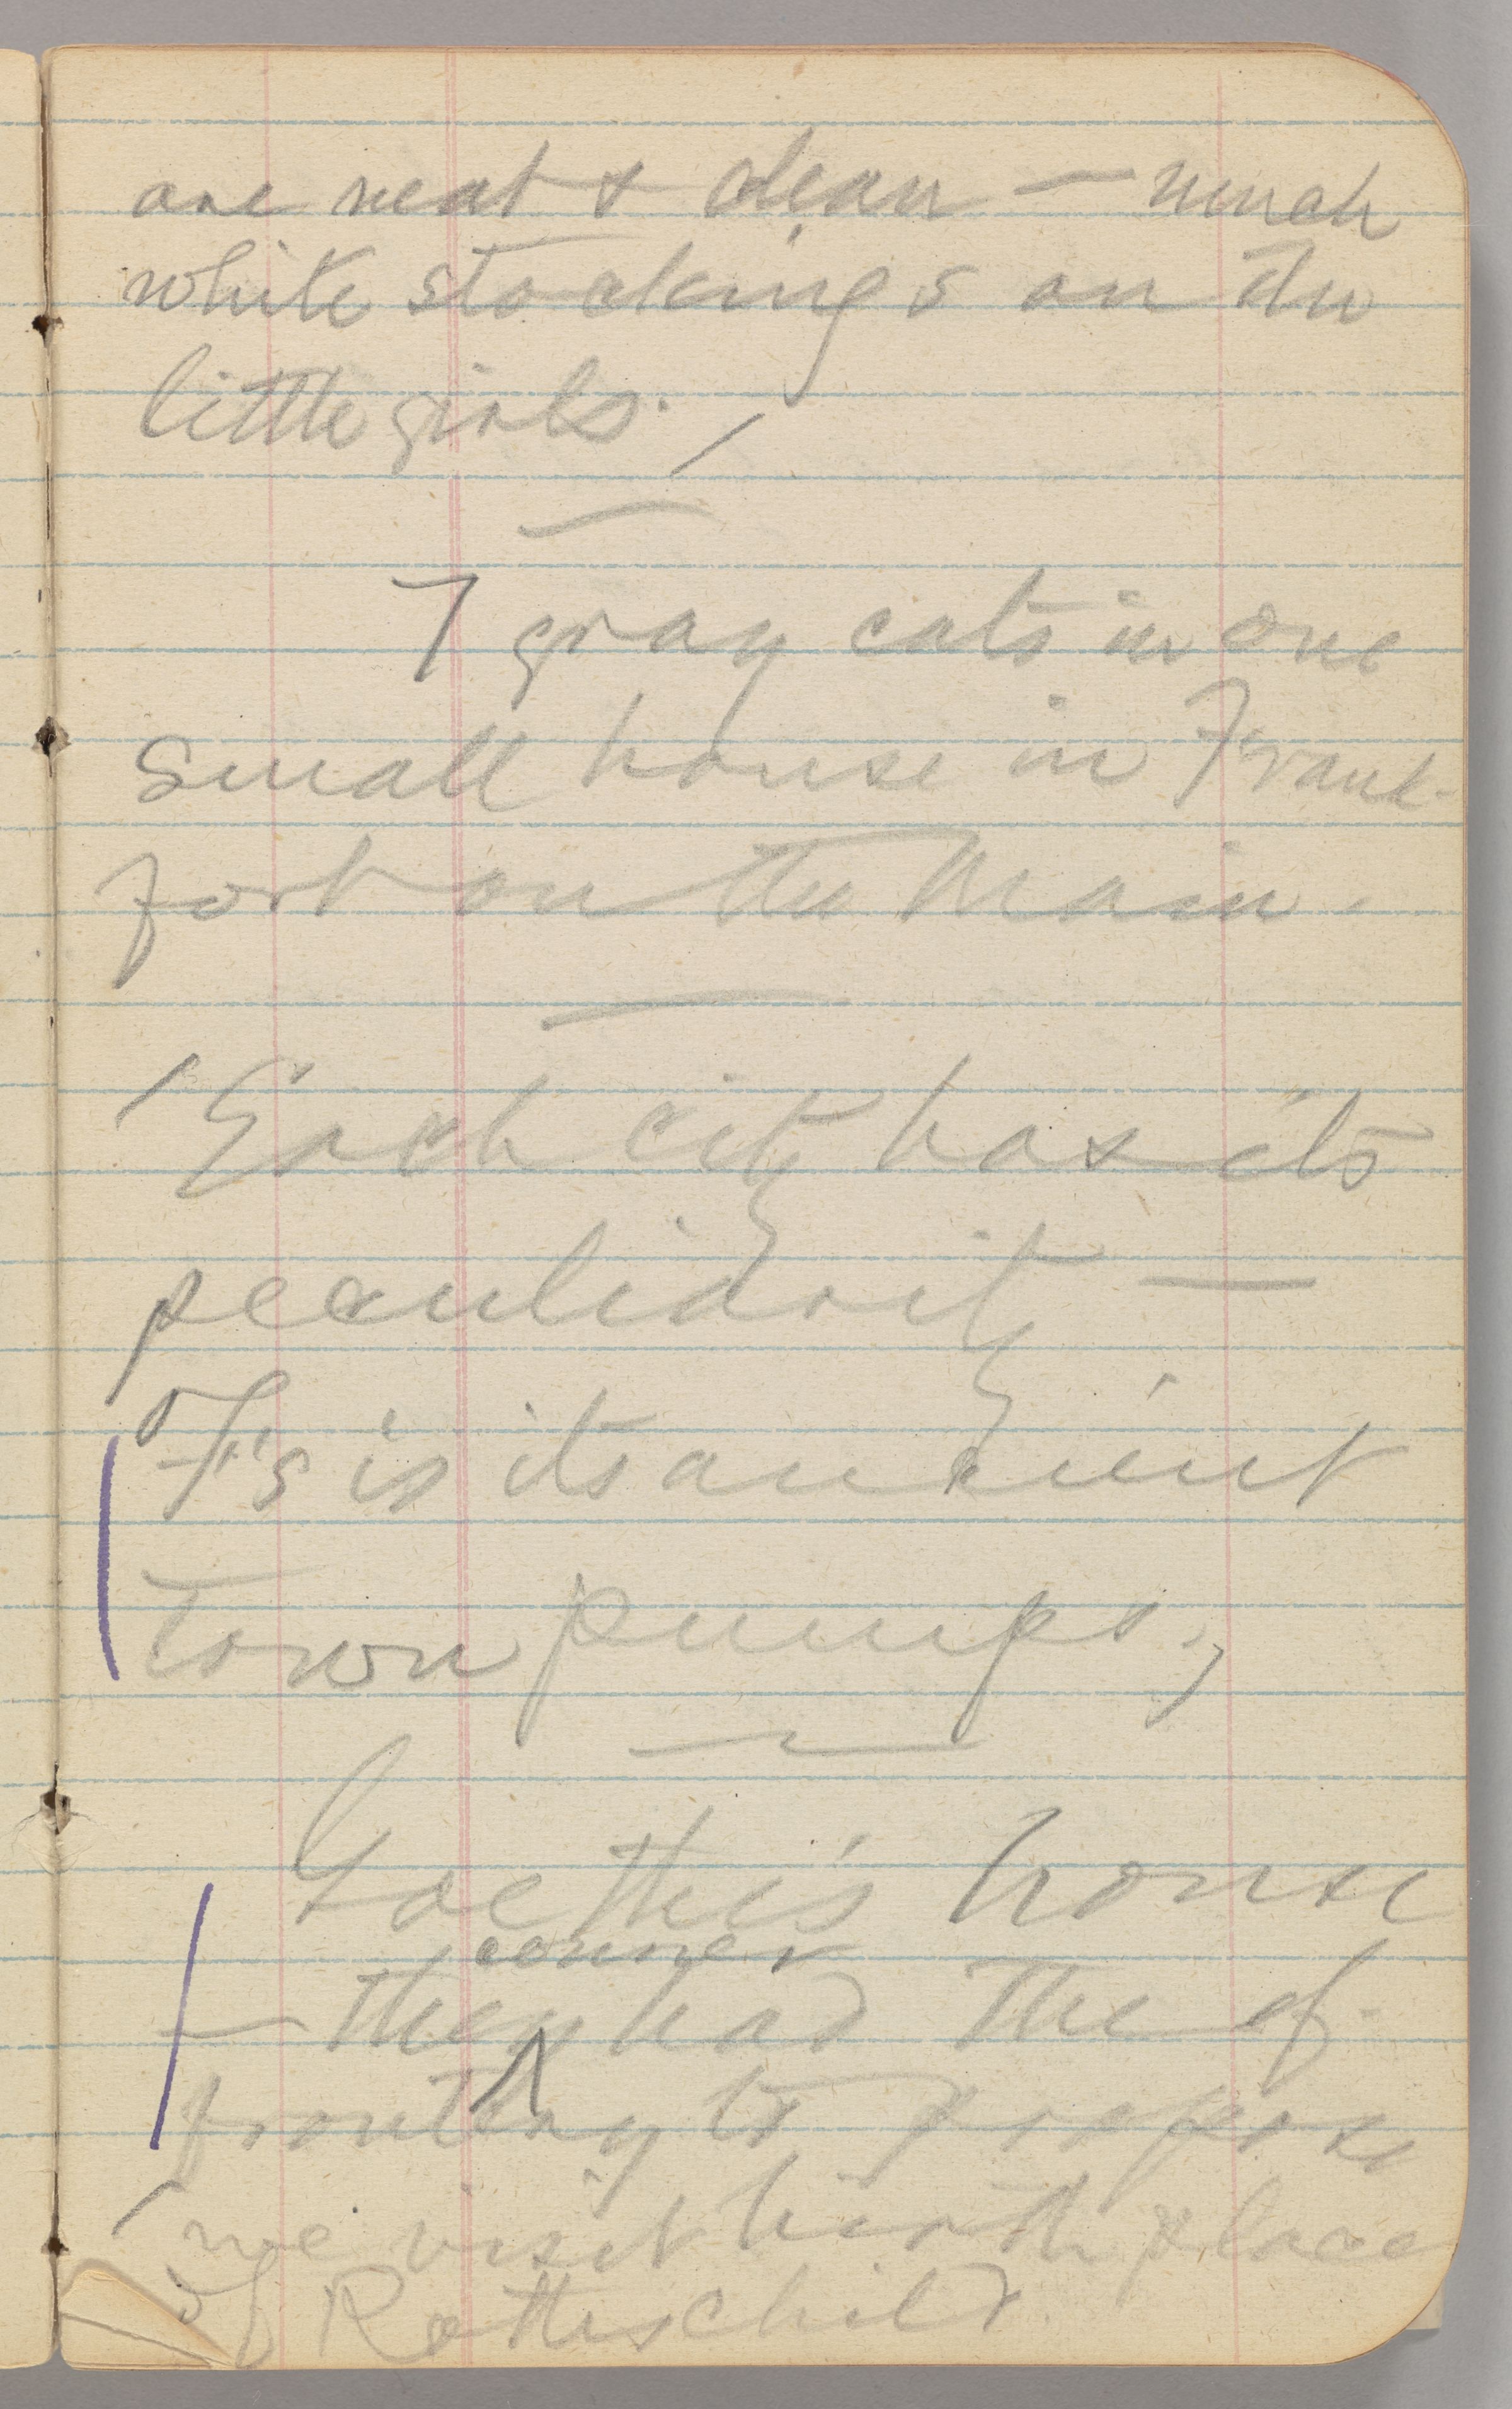 are neat & clean — much
white stockings on the
little girls.
7 gray cats in one
small house in Frank-
fort on the Main.
Each city has its
peculiarity —
F's is its ancient
town pumps.
Goethe's house
courier
— they had the ef-
frontery to propose
we visit birth place
of Rothschild.